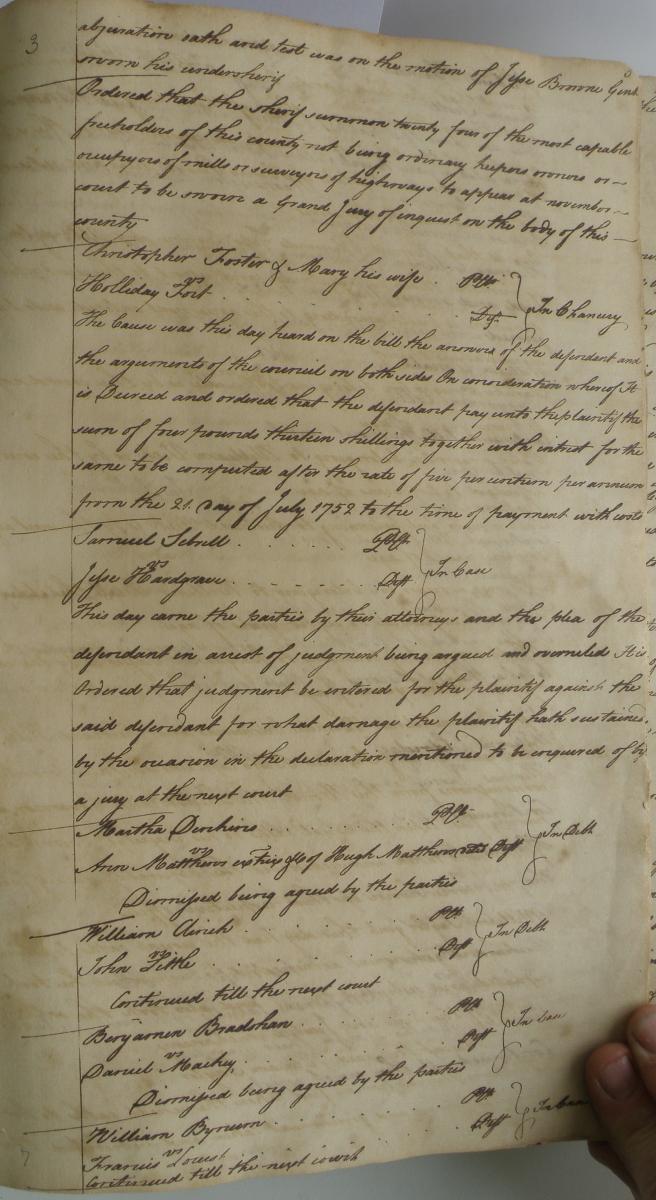 3
abjuration oath and test was on the motion of Jesse Browne Gent
sworn his undersherif
Ordered that the sherif summon twenty four of the most capable
freeholders of this county not being ordinary keepers owners or
occupyers of mills or surveyors of highways to appear at november
court to be sworn a Grand Jury of inquest on the body of this
county
Christophher Foster & Mary his wife . Pltf
vs
Holliday Fort . . . . Deft In Chancery
The Cause was this day heard on the bill the answer of the defendant and
the arguments of the council on both sides On consideration whereof It
is Decreed and ordered that the defendant pay unto the plaintif the
sum of four pounds thirteen shillings together with intrest for the
same to be computed after the rate of five per centum per annum
from the 21. Day of July 1752 to the time of payment with costs
Samuel Sebrell . . . . . Pltf
vs
Jesse Hardgrave . . . . . Deft In Case
This day came the parties by their attorneys and the plea of the
defendant in arrest of judgment being argued and overruled It is
Ordered that judgment be entered for the plaintif against the
said defendant for what damage the plaintif hath sustained
by the occasion in the declaration mentioned to be enquired of by
a jury at the next court
Martha . . . . . Pltf
vs
Ann Matthews of Hugh Matthews Deft In Debt
Dismissed being agreed by the parties
William . . . . . Pltf
vs
John Little . . . . . Deft In Debt
Continued till the next court
Benjamen Bradshaw . . . . . Pltf
vs
Daniel Mackey . . . . . Deft In Case
Dismissed being agreed by the parties
William Bynum . . . . . Pltf
vs
Francis . . . . . Deft In Case
Continued till the next court
7